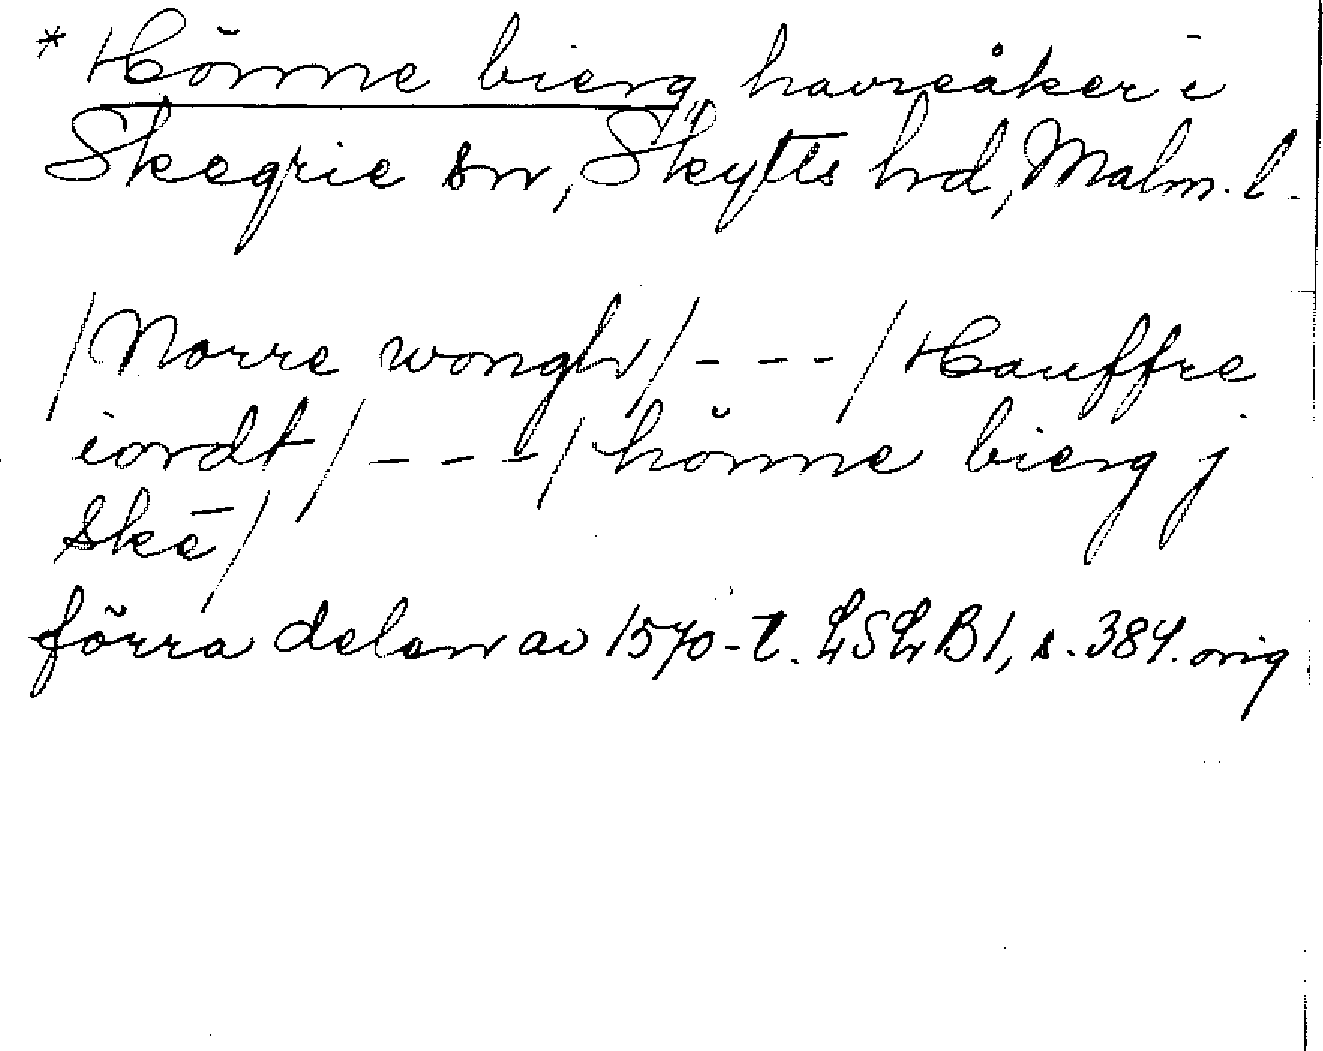 * Hönne bierg, havreåker i
Skegrie sn, Skytts hrd, Malm. l.
/Norre wongh/ - - - /Hauffre
iordt/ - - - /hönne bierg j
skē/
förra delen av 1570-t. LSLB1, s. 384. orig